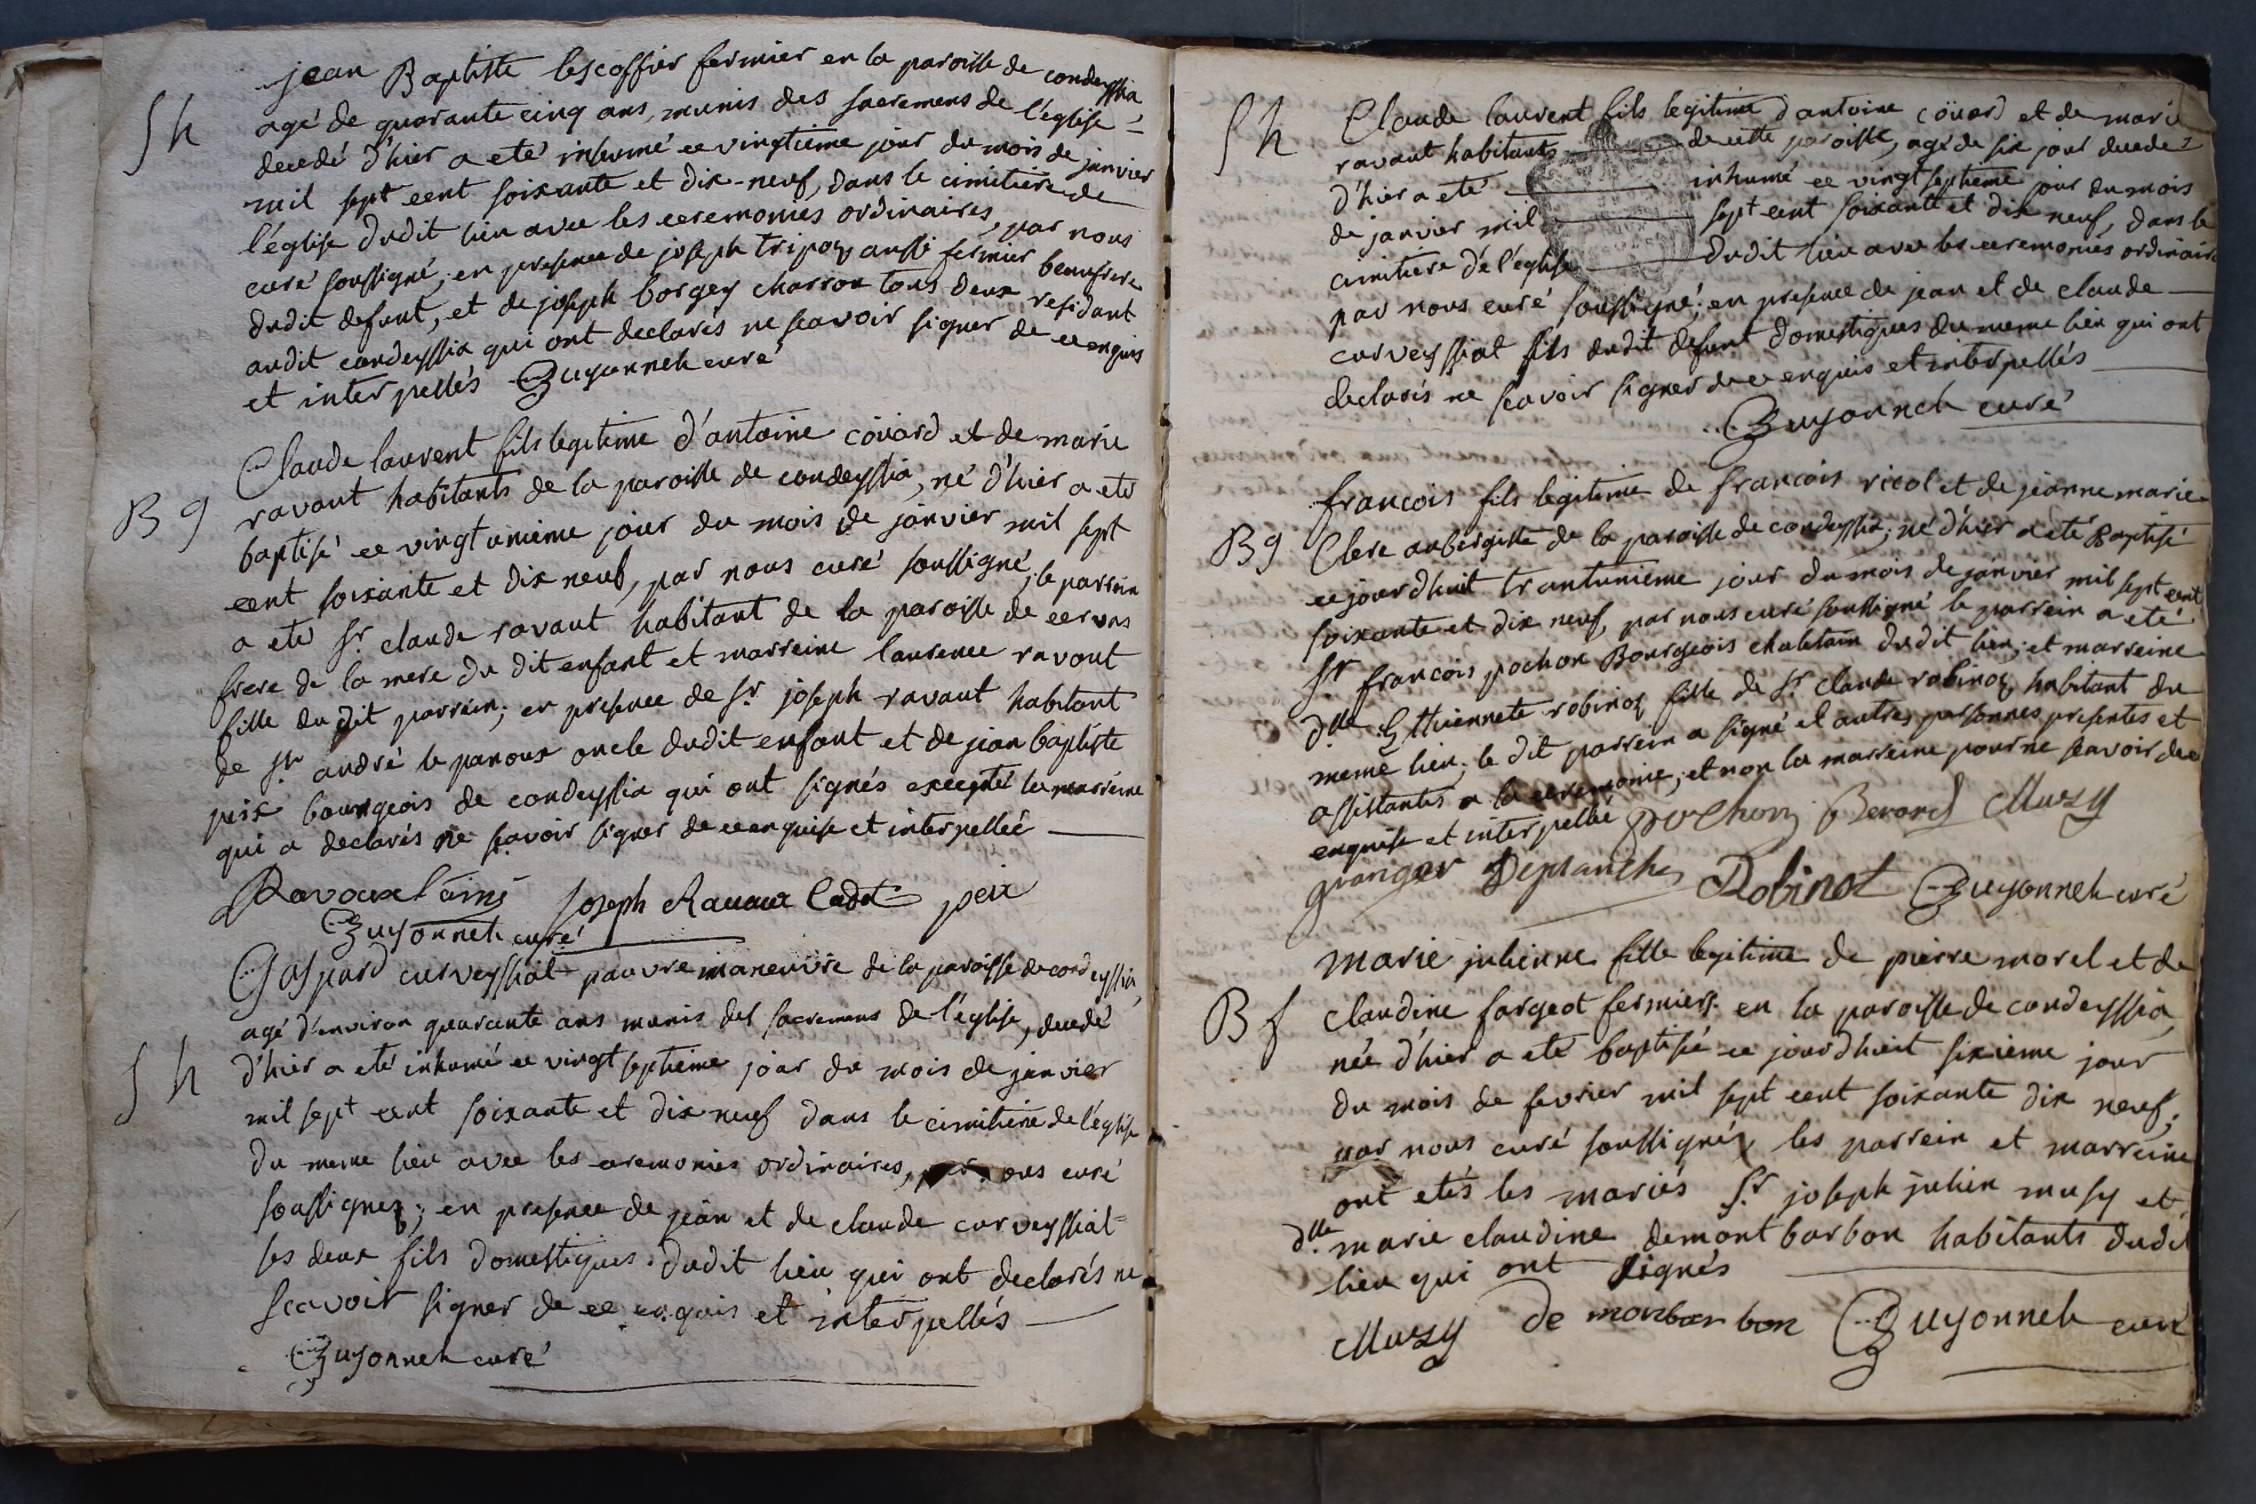 jean Baptiste lescoffier fermier en la paroisse de condeyssia
S h
agé de quarante cinq ans, munis des sacremens de l'église
decedé d'hier a eté inhumé ce vingtième jour du mois de janvier
mil sept cent soixante et dix-neuf, dans le cimitière de
l'église dudit lieu avec les ceremonies ordinaires, par nous
curé soussigné; en presence de joseph tripoz aussi fermier beaufrere
dudit defunt, et de joseph borgey charron tous deux residant
audit condeyssia qui ont declarés ne scavoir signer de ce enquis
et interpellés Guyonneh curé
Claude laurent fils legitime d'antoine coüard et de marie
B g
ravaut habitants de la paroisse de condeyssia, né d'hier a eté
baptisé ce vingt unieme jour du mois de janvier mil sept
cent soixante et dix neuf, par nous curé soussigné, le parrein
a eté sr. claude ravaut habitant de la paroisse de
frere de la mere du dit enfant et marreine laurence ravout
fille du dit parrein; en presence de sr. joseph ravaut habitant
de st. andré le panoux oncle dudit enfant et de jean baptiste
peix bourgeois de condeyssia qui ont signés excepté la marreine
qui a declarés ne scavoir signer de ce enquise et interpellée
Ravoux l'ainé joseph Ravaux Cadet peix
Guyonneh curé
Gaspard curveyssiat pauvre maneuvre de la paroisse de condeyssia,
agé d'environ quarante ans munis des sacremens de l'église, decedé
S h
d'hier a eté inhumé ce vingt septieme jour du mois de janvier
mil sept cent soixante et dix neuf dans le cimitiere de l'église
du meme lieu avec les ceremonies ordinaires, par nous curé
soussignez; en presence de jean et de claude curveyssiat
ses deux fils domestiques dudit lieu qui ont declarés ne
scavoir signer de ce enquis et interpellés
Guyonneh curé
Claude laurent fils legitime d'antoine coüard et de marie
S h
ravaut habitants de cette paroisse, agé de six jour decedé
d'hier a eté inhumé ce vingt septieme jour du mois
de janvier mil sept cent soixante et dix neuf, dans le
cimitiere de l'église dudit lieu avec les ceremonies ordinaires
par nous curé soussigné; en presence de jean et de claude
curveyssiat fils dudit defunt domestiques du meme lieu qui ont
declarés ne scavoir signer de ce enquis et interpellés
Guyonneh curé
francois fils legitime de francois ricol et de jeanne marie
B g
Clerc aubergiste de la paroisse de condeyssia; né d'hier a eté Baptisé
ce jourdhuit trantunieme jour du mois de janvier mil sept cent
soixante et dix neuf, par nous curé soussigné le parrein a eté
sr. francois pochon Bourgeois chatelain dudit lieu, et marreine
dlle. Etthiennete robinoz fille de sr. claude robinoz, habitant du
meme lieu; le dit parrein a signé et autres personnes presentes et
assistantes a la ceremonie, et non la marreine pour ne scavoir de ce
enquise et interpellé pochon Berard Muzy
granger Deplanche Robinot Guyonneh curé
marie julienne fille legitime de pierre morel et de
B f
claudine fargeot fermiers en la paroisse de condeyssia,
née d'hier a eté baptisée ce jourdhuit sixieme jour
du mois de fevrier mil sept cent soixante dix neuf;
par nous curé soussignéz les parrein et marreine
ont etés les mariés sr. joseph julien musy et
dlle. marie claudine demontbarbon habitants dudit
lieu qui ont signés
Muzy de monbarbon Guyonneh curé